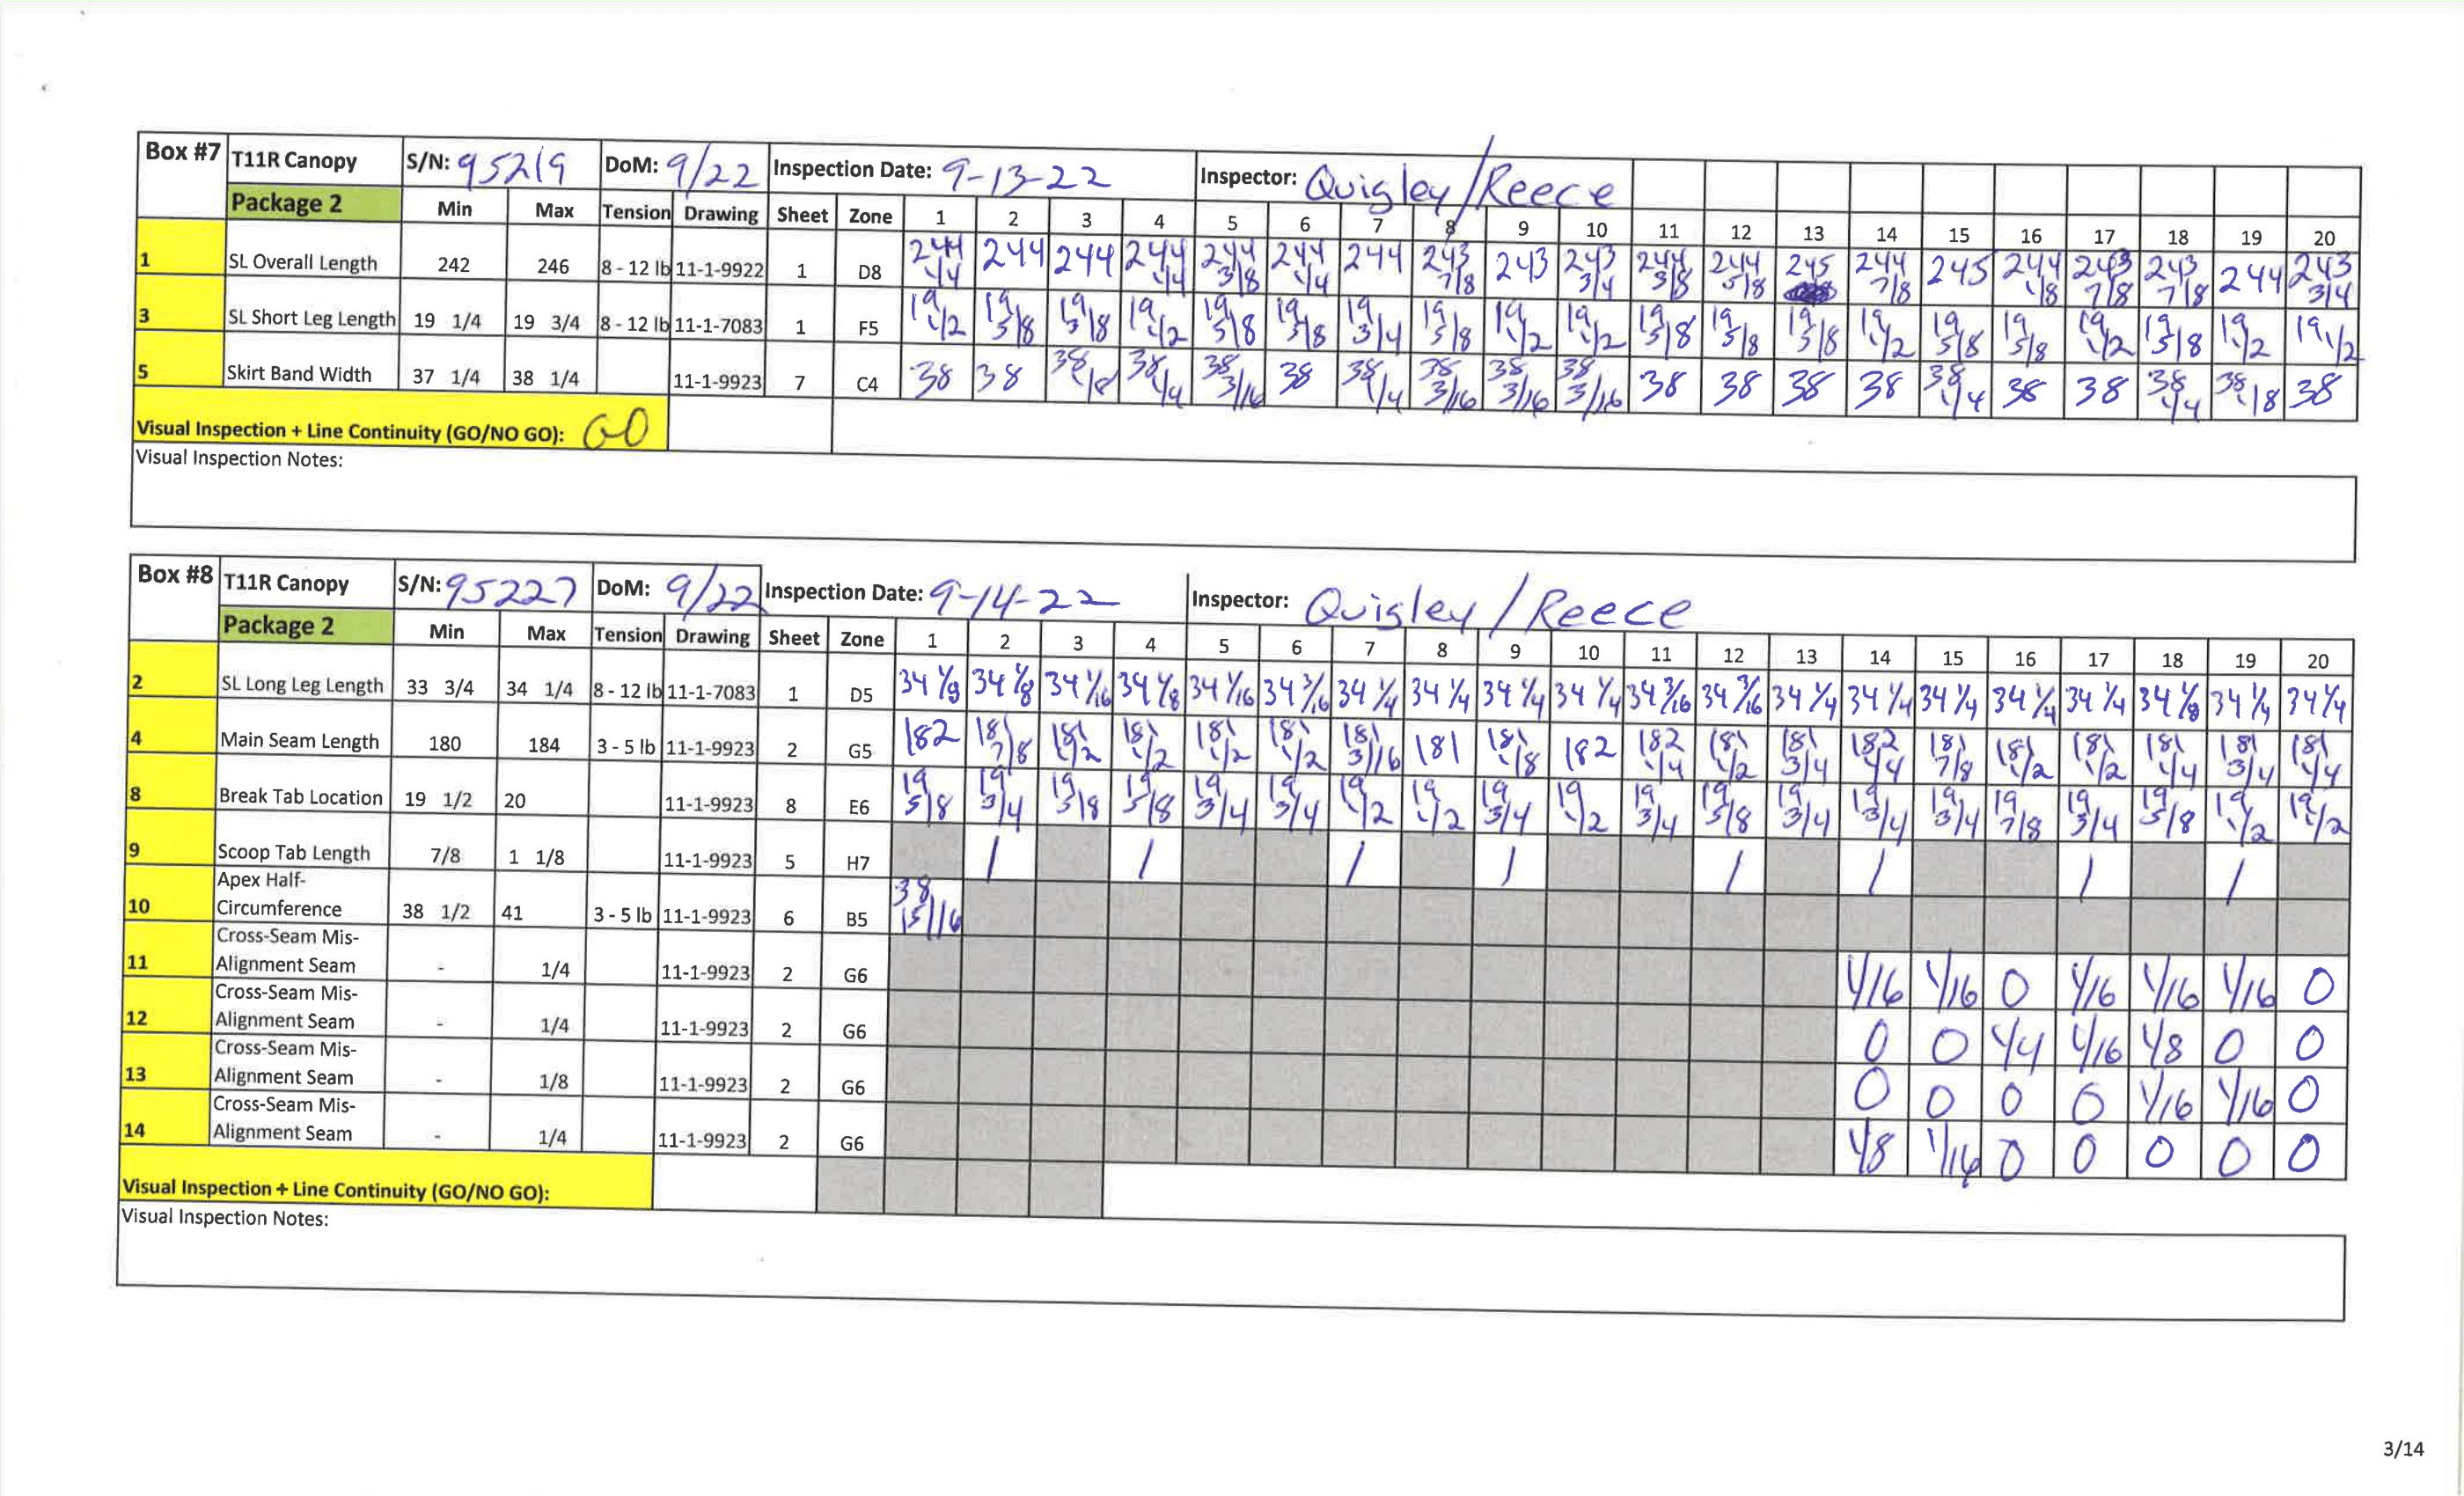 Box #7 T11R Canopy S/N: 95219 DoM: 9/22 Inspection Date: 9-13-22 Inspector: Quigley/Reece
Package 2 Min Max Tension Drawing Sheet Zone 1 2 3 4 5 6 7 8 9 10 11 12 13 14 15 16 17 18 19 20
1 SL Overall Length 242 246 8 - 12 lb 11-1-9922 1 D8 244 1/4 244 244 244 1/4 244 3/8 244 1/4 244 243 7/8 243 243 3/4 244 3/8 244 5/8 245 244 7/8 245 244 1/8 243 7/8 243 7/8 244 243 3/4
3 SL Short Leg Length 19 1/4 19 3/4 8 - 12 lb 11-1-7083 1 F5 19 1/2 19 5/8 19 5/8 19 1/2 19 5/8 19 5/8 19 3/4 19 5/8 19 1/2 19 1/2 19 5/8 19 5/8 19 5/8 19 1/2 19 5/8 19 5/8 19 1/2 19 5/8 19 1/2 19 1/2
5 Skirt Band Width 37 1/4 38 1/4 11-1-9923 7 C4 38 38 38 1/8 38 1/4 38 3/16 38 38 1/4 38 3/16 38 3/16 38 3/16 38 38 38 38 38 1/4 38 38 38 1/4 38 1/8 38
Visual Inspection + Line Continuity (GO/NO GO): GO
Visual Inspection Notes:
Box #8 T11R Canopy S/N: 95227 DoM: 9/22 Inspection Date: 9-14-22 Inspector: Quigley/Reece
Package 2 Min Max Tension Drawing Sheet Zone 1 2 3 4 5 6 7 8 9 10 11 12 13 14 15 16 17 18 19 20
2 SL Long Leg Length 33 3/4 34 1/4 8 - 12 lb 11-1-7083 1 D5 34 1/8 34 1/8 34 1/16 34 1/8 34 1/16 34 3/16 34 1/4 34 1/4 34 1/4 34 1/4 34 3/16 34 3/16 34 1/4 34 1/4 34 1/4 34 1/4 34 1/4 34 1/8 34 1/4 34 1/4
4 Main Seam Length 180 184 3 - 5 lb 11-1-9923 2 G5 182 181 7/8 181 1/2 181 1/2 181 1/2 181 1/2 181 3/16 181 181 1/8 182 182 1/4 181 1/2 181 3/4 182 1/4 181 7/8 181 1/2 181 1/2 181 1/4 181 3/4 181 1/4
8 Break Tab Location 19 1/2 20 11-1-9923 8 E6 19 5/8 19 3/4 19 5/8 19 5/8 19 3/4 19 3/4 19 1/2 19 1/2 19 3/4 19 1/2 19 3/4 19 5/8 19 3/4 19 3/4 19 3/4 19 7/8 19 3/4 19 5/8 19 1/2 19 1/2
9 Scoop Tab Length 7/8 1 1/8 11-1-9923 5 H7 1 1 1 1 1 1 1 1
Apex Half-
10 Circumference 38 1/2 41 3 - 5 lb 11-1-9923 6 B5 38 15/16
Cross-Seam Mis-
11 Alignment Seam - 1/4 11-1-9923 2 G6 1/16 1/16 0 1/16 1/16 1/16 0
Cross-Seam Mis-
12 Alignment Seam - 1/4 11-1-9923 2 G6 0 0 1/4 1/16 1/8 0 0
Cross-Seam Mis-
13 Alignment Seam - 1/8 11-1-9923 2 G6 0 0 0 0 1/16 1/16 0
Cross-Seam Mis-
14 Alignment Seam - 1/4 11-1-9923 2 G6 1/8 1/16 0 0 0 0 0
Visual Inspection + Line Continuity (GO/NO GO):
Visual Inspection Notes:
3/14